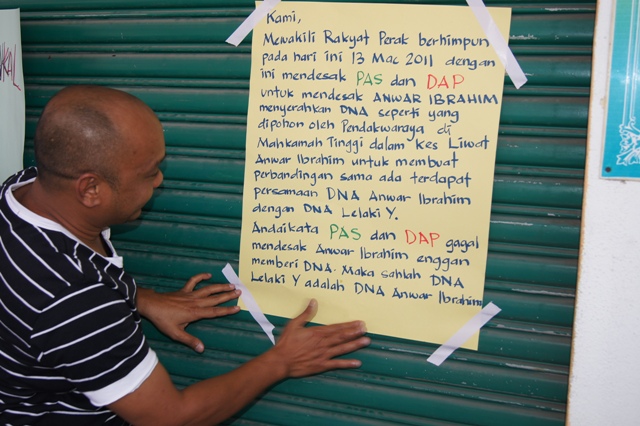 KAL
Kami,
Mewakili Rakyat Perak berhimpun
pada hari ini 13 Mac 2011 dengan
ini mendesak PAS dan DAP
untuk mendesak ANWAR IBRAHIM
menyerahkan DNA seperti yang
dipohon oleh Pendakwaraya di
Mahkamah Tinggi dalam kes Liwat
Anwar Ibrahim untuk membuat
perbandingan sama ada terdapat
persamaan DNA Anwar Ibrahim
dengan DNA Lelaki Y.
Andaikata PAS dan DAP gagal
mendesak Anwar Ibrahim enggan
memberi DNA. Maka sahlah DNA
Lelaki Y adalah DNA Anwar Ibrahim